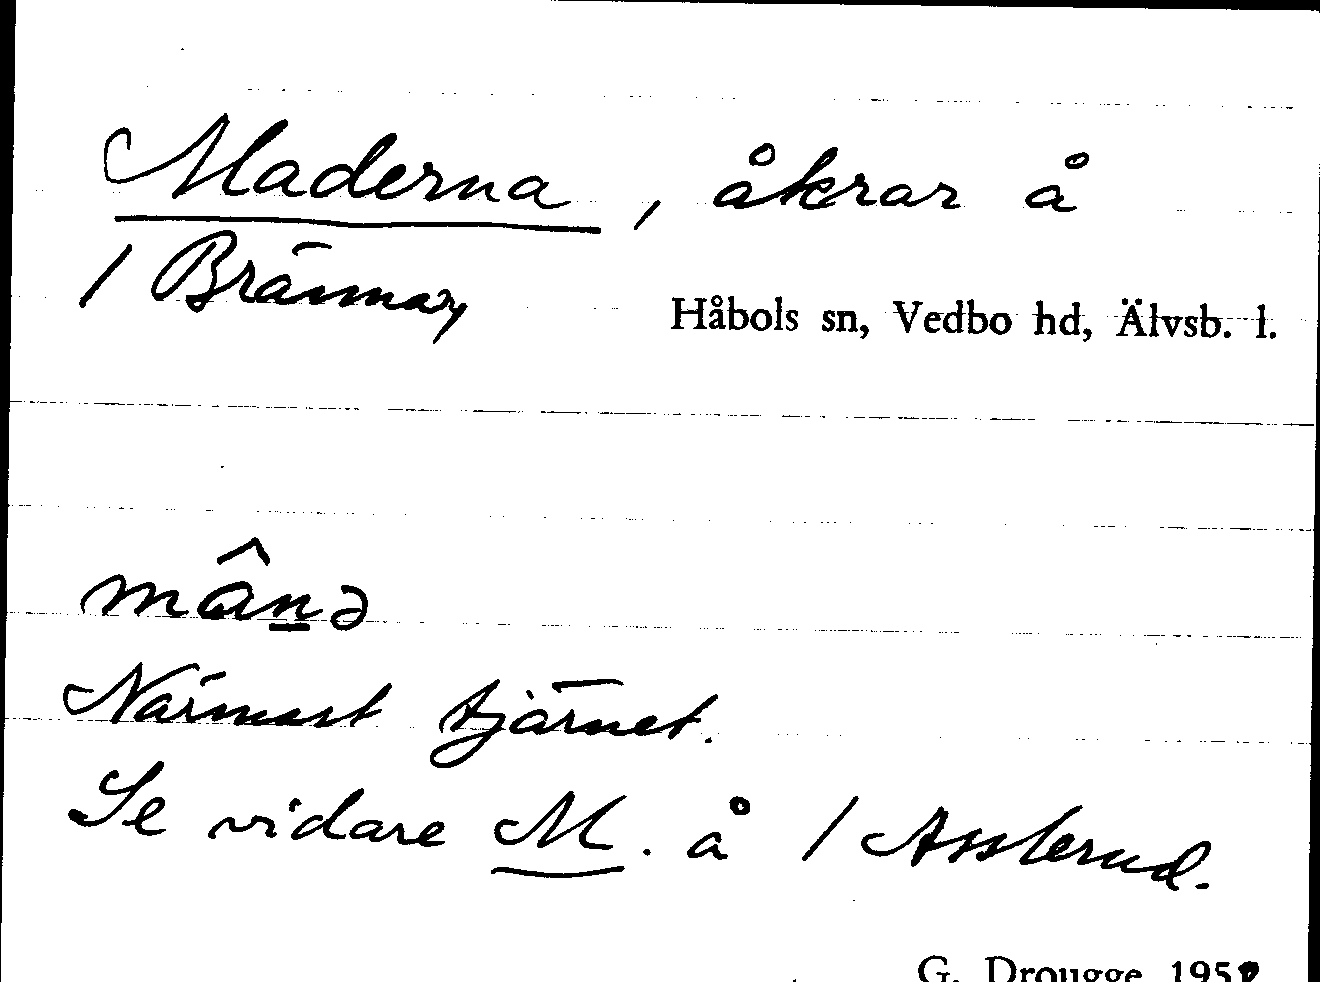 Maderna, åkrar å
1 Brännay
Håbols sn, Vedbo hd, Älvsb. l.
mânə
Närmast tjärnet.
Se vidare M. å 1 Assterud.
G. Drougge 1952